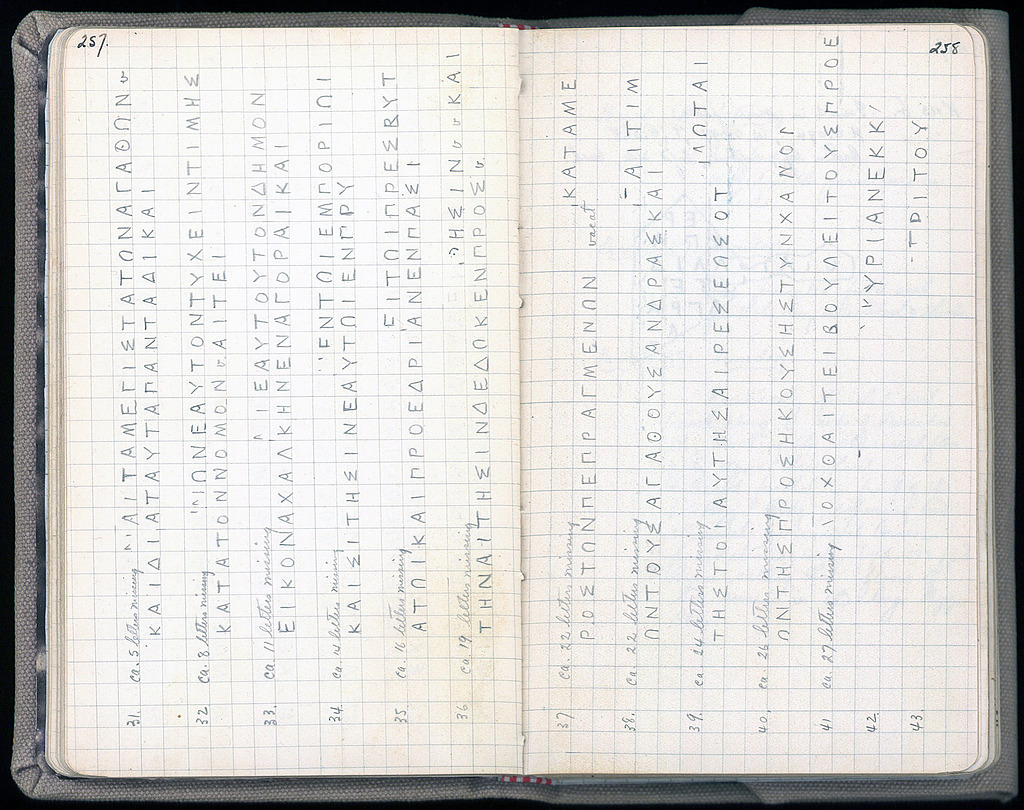 257.
31. ca. 5 letters missing ΑΙΤΑΜΕΓΙΣΤΑΤΩΝΑΓΑΘΩΝ v
ΚΑΙΔΙΑΤΑΥΤΑΠΑΝΤΑΔΙΚΑΙ
32 ca. 8 letters missing ΙΩΝΕΑΥΤΟΝΤΥΧΕΙΝΤΙΜΗΣ
ΚΑΤΑΤΟΝΝΟΜΟΝ v ΑΙΤΕΙ
33. ca. 11 letters missing ΙΕΑΥΤΟΥΤΟΝΔΗΜΟΝ
ΕΙΚΟΝΑΧΑΛΚΗΝΕΝΑΓΟΡΑΙΚΑΙ
34. ca. 14 letters missing ΕΝΤΩΙΕΜΠΟΡΙΩΙ
ΚΑΙΣΙΤΗΣΙΝΕΑΥΤΩΙΕΝΠΡΥ
35. ca. 16 letters missing ΕΙΤΩΙΠΡΕΣΒΥΤ
ΑΤΩΙΚΑΙΠΡΟΕΔΡΙΑΝΕΝΠΑΣΙ
36 ca 19 letters missing ΗΣΙΝ v v ΚΑΙ
ΤΗΝΑΙΤΗΣΙΝΔΕΔΩΚΕΝΠΡΟΣ v
258
37 ca. 22 letters missing ΚΑΤΑΜΕ
ΡΟΣΤΩΝΠΕΠΡΑΓΜΕΝΩΝ vacat
38. ca. 22 letters missing ΑΙΤΙΜ
ΩΝΤΟΥΣΑΓΑΘΟΥΣΑΝΔΡΑΣΚΑΙ
39. ca 24 letters missing ΩΤΑΙ
ΤΗΣΤΟΙΑΥΤΗΣΑΙΡΕΣΕΩΣΟΤ
40. ca. 26 letters missing
ΩΝΤΗΣΠΡΟΣΗΚΟΥΣΗΣΤΥΝΧΑΝΟΙ
41 ca. 27 letters missing ΙΟΧΘΑΙΤΕΙΒΟΥΛΕΙΤΟΥΣΠΡΟΕ
42. ΥΡΙΑΝΕΚΚ
43 ΤΡΙΤΟΥ